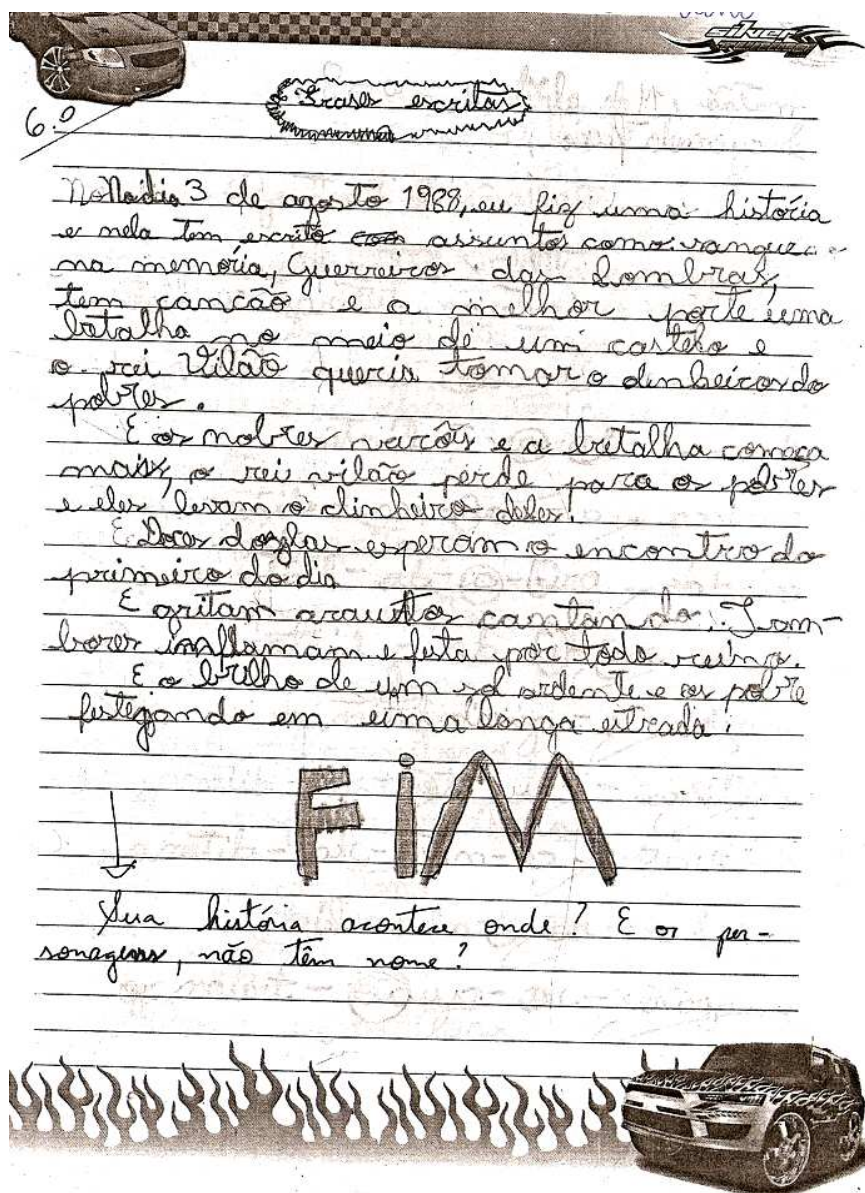 silver
6.º
Frases escritas
No Na dia 3 de agosto 1988, eu fiz uma história
e nela tem escrito com assuntos como: sangue
na memória, Guerreiros das Sombras,
tem canção e a melhor parte uma
batalha no meio de um castelo e
o rei Vilão queria tomar o dinheiro do
pobres.
E os nobres varões e a batalha começa
mais, o rei vilão perde para os pobres
e eles levam o dinheiro deles!
E Doces esperam o encontro do
primeiro do dia
E gritam arautos cantando: Tam-
bores inflamam e festa por todo reino.
E o brilho de um sol ardente e os pobre
festejando em uma longa estrada.
FiM
Sua história acontece onde? E os per-
sonagens, não têm nome?